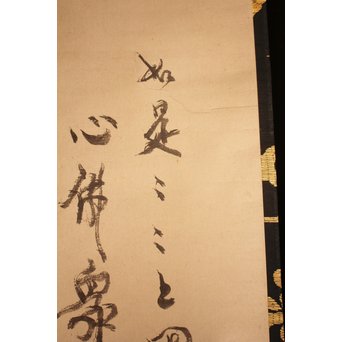 如是ミこと
心佛衆